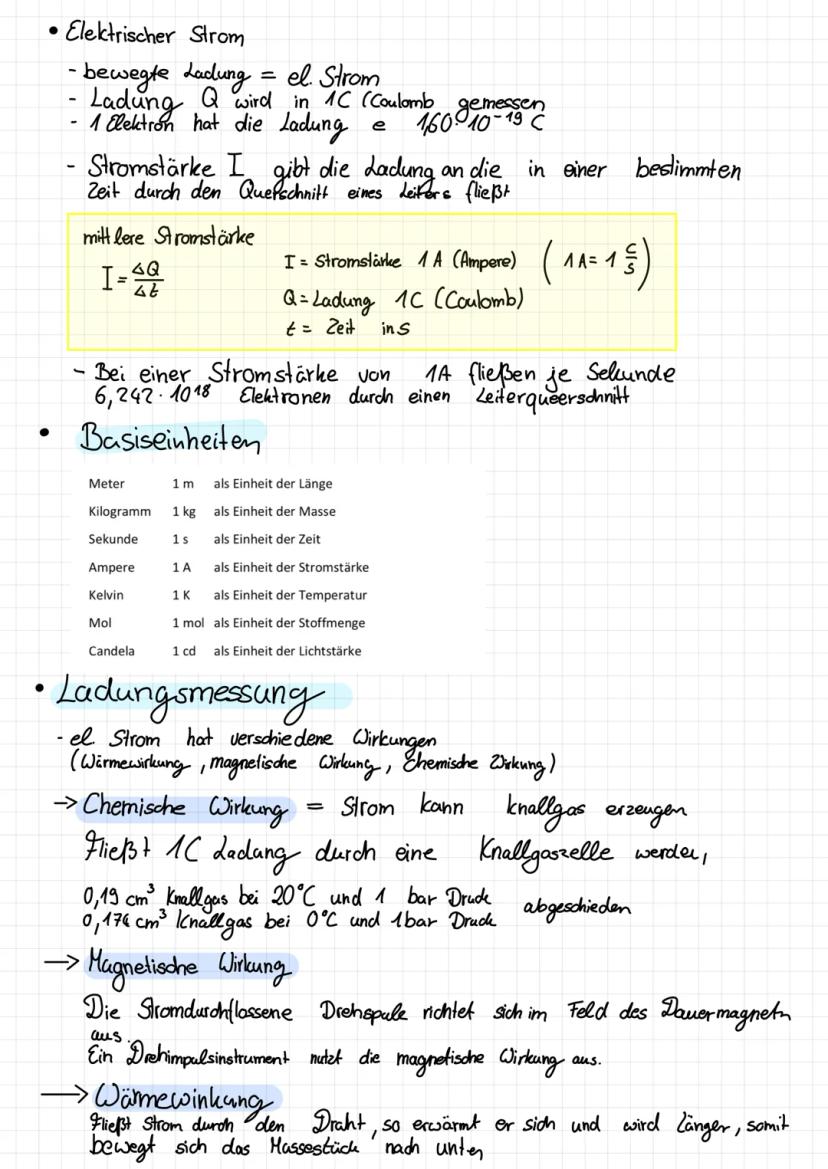 • Elektrischer Strom
- bewegte Ladung = el. Strom
- Ladung Q wird in 1C (Coulomb gemessen
- 1 Elektron hat die Ladung e 1,60·10⁻¹⁹ C
- Stromstärke I gibt die Ladung an die in einer bestimmten
Zeit durch den Querschnitt eines Leiters fließt
mittlere Stromstärke
I = ΔQ/Δt
I = Stromstärke 1 A (Ampere) (1A = 1 C/S)
Q = Ladung 1C (Coulomb)
t = Zeit in s
- Bei einer Stromstärke von 1A fließen je Sekunde
6,242 · 10¹⁸ Elektronen durch einen Leiterqueerschnitt
• Basiseinheiten
Meter 1 m als Einheit der Länge
Kilogramm 1 kg als Einheit der Masse
Sekunde 1 s als Einheit der Zeit
Ampere 1 A als Einheit der Stromstärke
Kelvin 1 K als Einheit der Temperatur
Mol 1 mol als Einheit der Stoffmenge
Candela 1 cd als Einheit der Lichtstärke
• Ladungsmessung
- el. Strom hat verschiedene Wirkungen
(Wärmewirkung, magnetische Wirkung, Chemische Wirkung)
→ Chemische Wirkung = Strom kann knallgas erzeugen
Fließt 1C Ladung durch eine Knallgaszelle werden,
0,19 cm³ Knallgas bei 20°C und 1 bar Druck
0,174 cm³ Knallgas bei 0°C und 1bar Druck abgeschieden
→ Magnetische Wirkung
Die Stromdurchflossene Drehspule richtet sich im Feld des Dauermagneten
aus.
Ein Drehimpulsinstrument nutzt die magnetische Wirkung aus.
→ Wärmewirkung
Fließt Strom durch den Draht, so erwärmt er sich und wird länger, somit
bewegt sich das Massestück nach unten